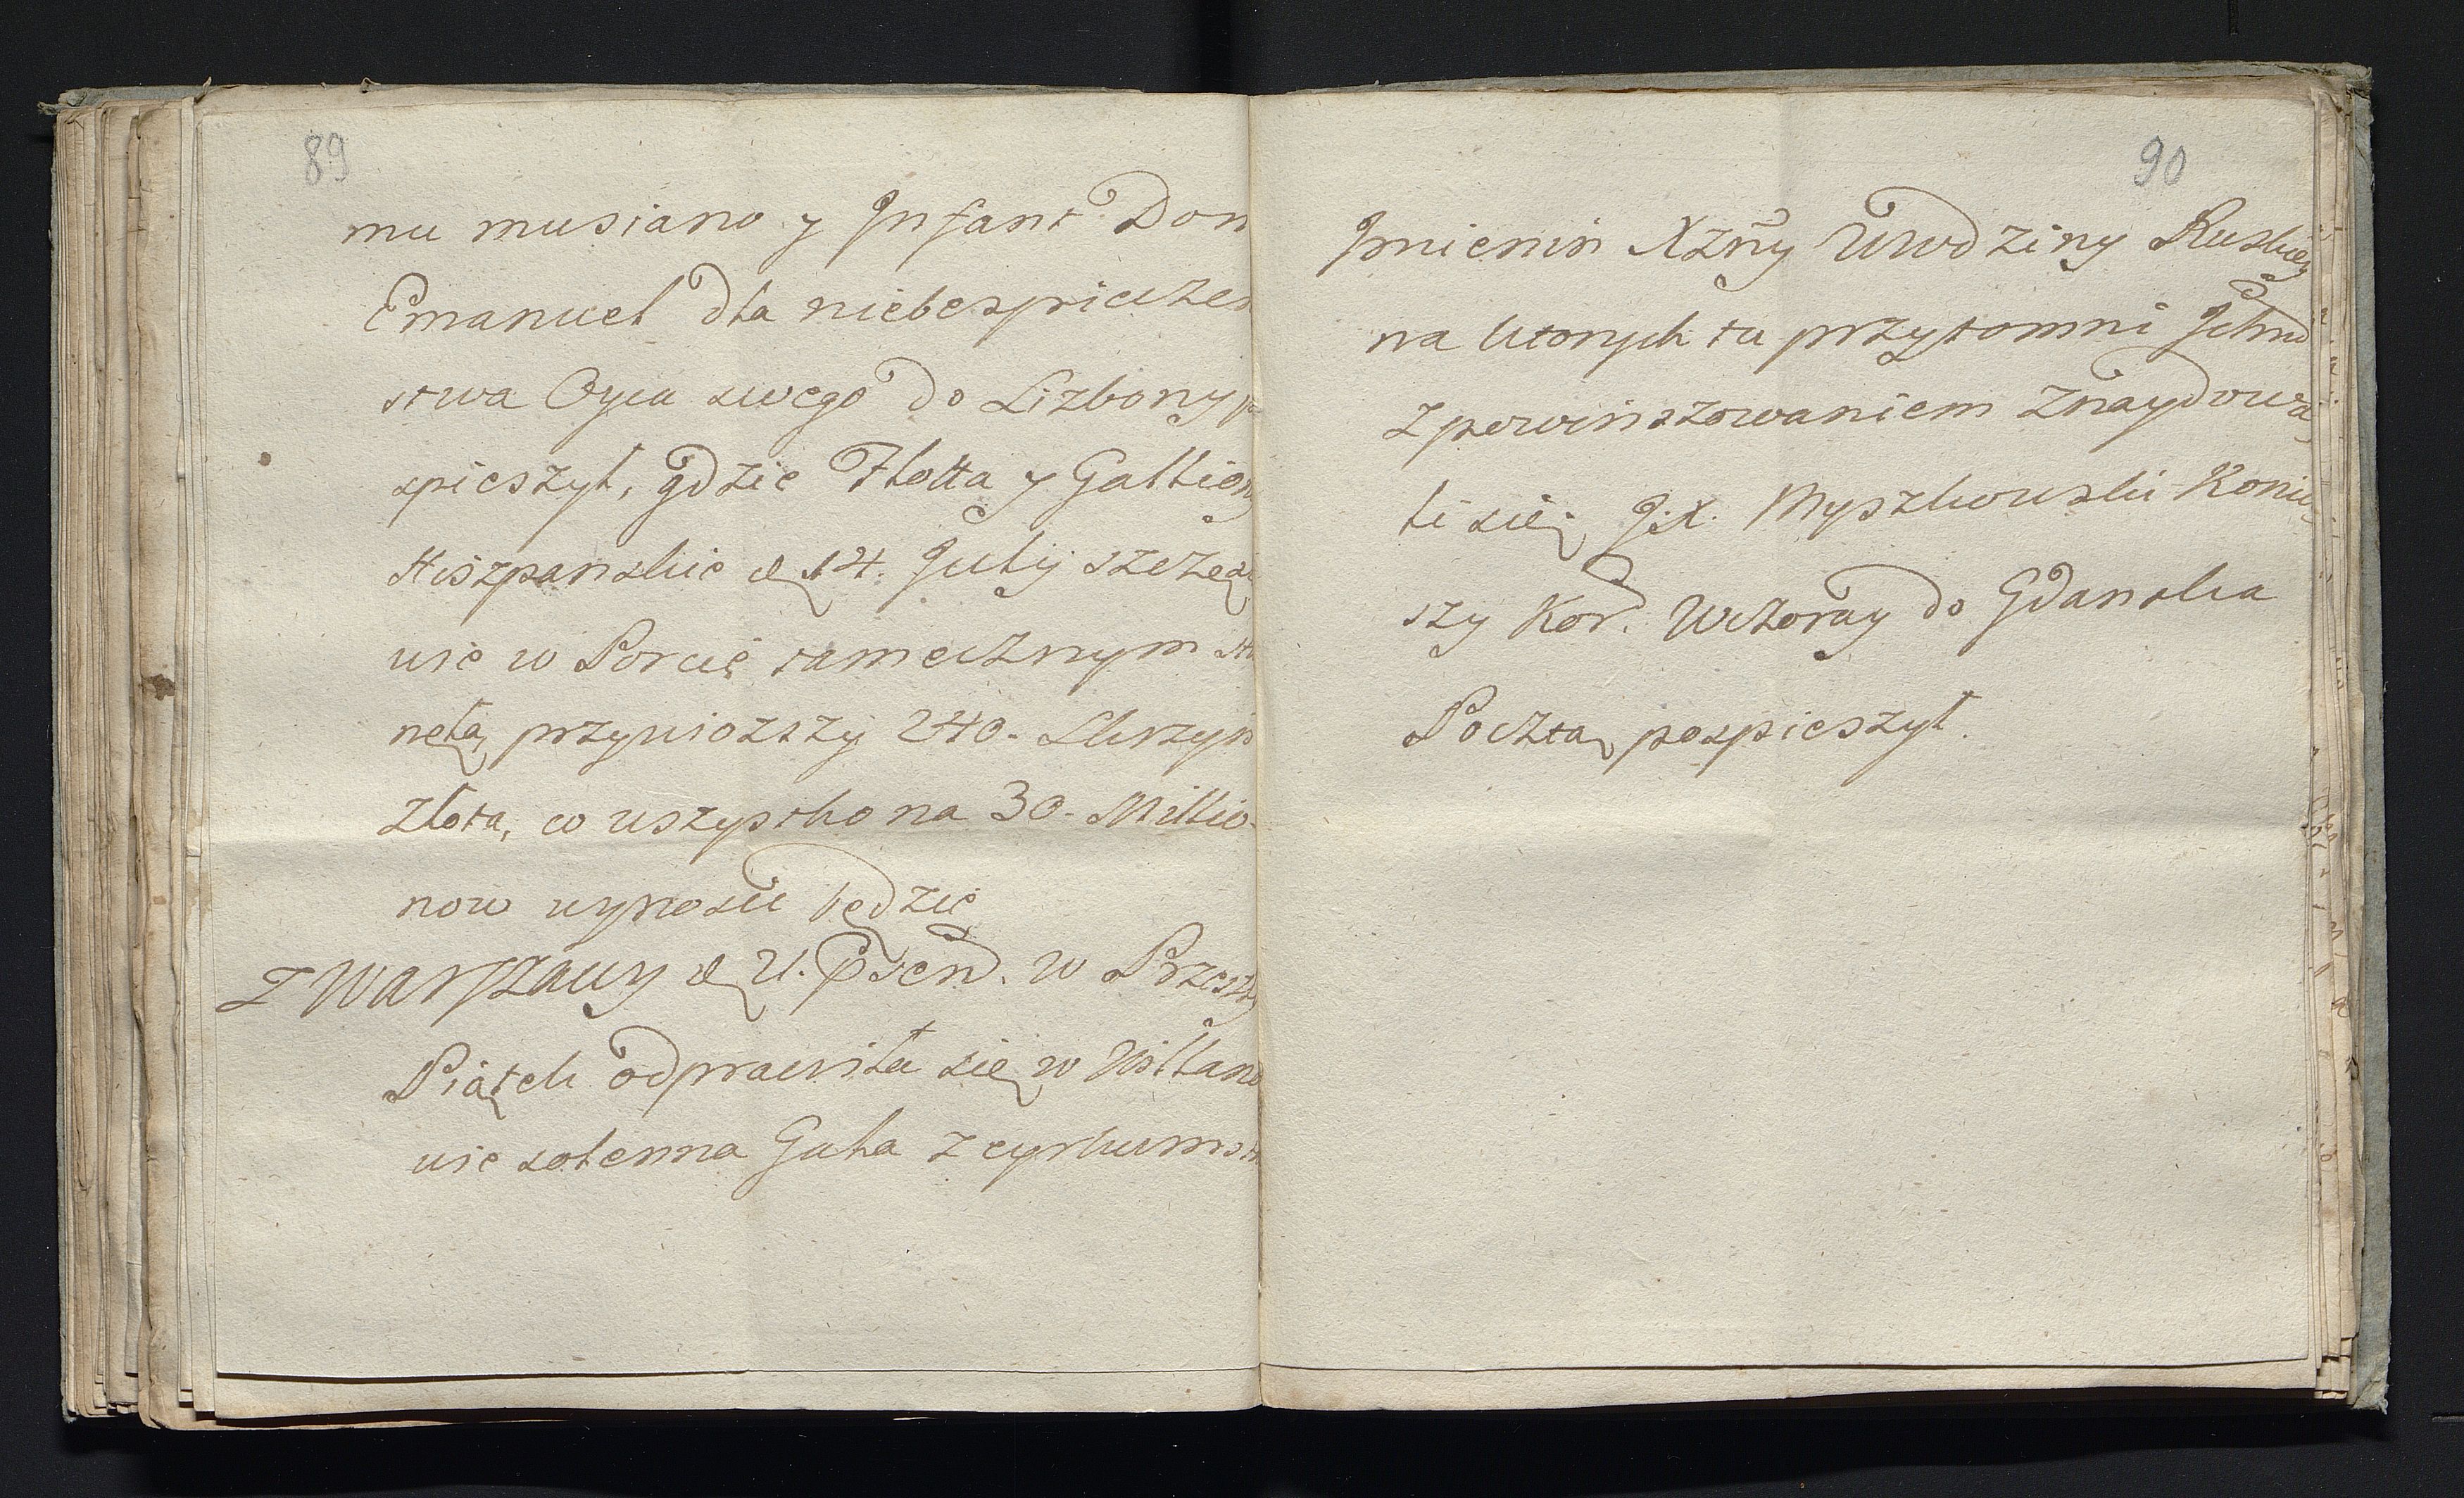 89
mu musiano y Infant Don
Emanuel dla niebespieczen
stwa Oyca swego do Lizbony
spieszył, gdzie Flotta y Gallion
Hiszpanskie d 14. Julij szczęśl
wie w Porcie tamecznym
netą przywiozszy 240. Skrzyn
złota, co wszystko na 30. Millio-
now wynosic będzie
Z Warszawy d 21. Psen. w Przeszły
Piątek odprawiła się w Willano
wie solenna Gala z cyrkumst
90
Imienin Xzny Uwdziny Ruskiey
na ktorych tu przytomni Ichmć
z powinszowaniem znaydowa
li się. J.X. Myszkowski Koniu
szy Kor. Wczoray do Gdanska
Pocztą pospieszył.